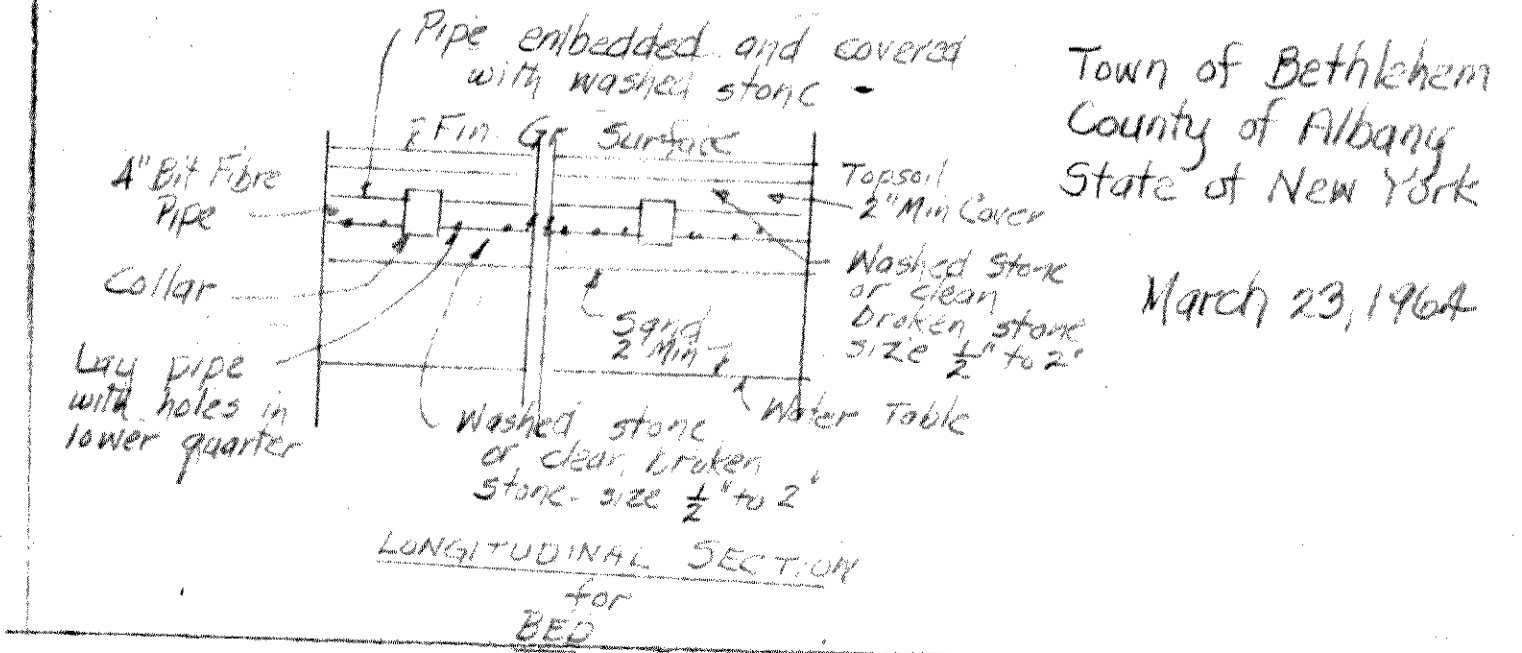 Pipe embedded and covered
with washed stone
Fin. Gr. Surface
4" Bit Fibre
Pipe
Collar
Lay pipe
with holes in
lower quarter
Topsoil
2" Min Cover
Washed Stone
or clean
broken stone
size 1/2" to 2"
Sand
2' Min
Water Table
Washed stone
or clean broken
stone - size 1/2" to 2"
LONGITUDINAL SECTION
for
BED
Town of Bethlehem
County of Albany
State of New York
March 23, 1964